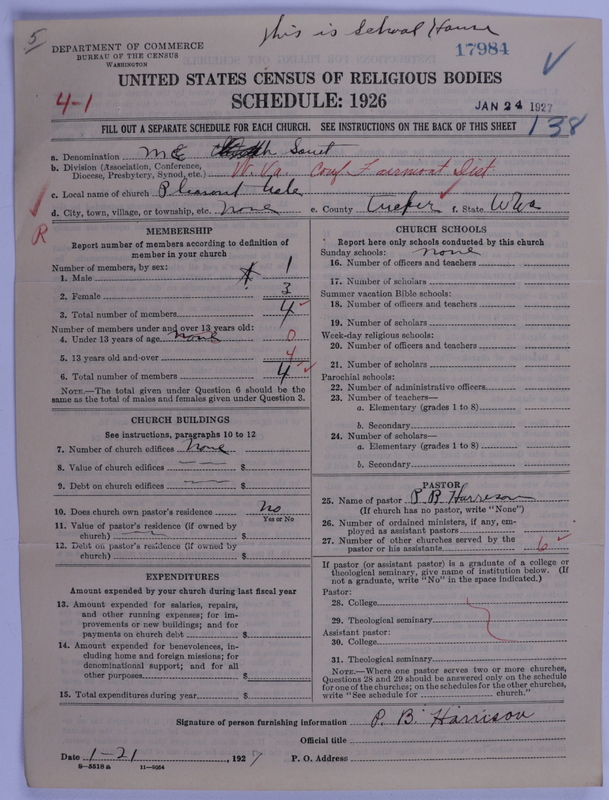 5
This is School House
DEPARTMENT OF COMMERCE
BUREAU OF THE CENSUS
WASHINGTON
17984
UNITED STATES CENSUS OF RELIGIOUS BODIES
4-1
SCHEDULE: 1926
JAN 24 1927
FILL OUT A SEPARATE SCHEDULE FOR EACH CHURCH. SEE INSTRUCTIONS ON THE BACK OF THIS SHEET
138
a. Denomination M E South
b. Division (Association, Conference, Diocese, Presbytery, Synod, etc.) W. Va. Conf Fairmont Dist
c. Local name of church Pleasant
d. City, town, village, or township, etc. None e. County Tucker f. State W Va
R
MEMBERSHIP
Report number of members according to definition of
member in your church
Number of members, by sex:
1. Male 1
2. Female 3
3. Total number of members 4
Number of members under and over 13 years old:
4. Under 13 years of age none 0
5. 13 years old and over 4
6. Total number of members 4
NOTE.—The total given under Question 6 should be the
same as the total of males and females given under Question 3.
CHURCH BUILDINGS
See instructions, paragraphs 10 to 12
7. Number of church edifices None
8. Value of church edifices $
9. Debt on church edifices $
10. Does church own pastor's residence No
Yes or No
11. Value of pastor's residence (if owned by
church) $
12. Debt on pastor's residence (if owned by
church) $
EXPENDITURES
Amount expended by your church during last fiscal year
13. Amount expended for salaries, repairs,
and other running expenses; for im-
provements or new buildings; and for
payments on church debt $
14. Amount expended for benevolences, in-
cluding home and foreign missions; for
denominational support; and for all
other purposes $
15. Total expenditures during year $
CHURCH SCHOOLS
Report here only schools conducted by this church
Sunday schools: none
16. Number of officers and teachers
17. Number of scholars
Summer vacation Bible schools:
18. Number of officers and teachers
19. Number of scholars
Week-day religious schools:
20. Number of officers and teachers
21. Number of scholars
Parochial schools:
22. Number of administrative officers
23. Number of teachers—
a. Elementary (grades 1 to 8)
b. Secondary
24. Number of scholars—
a. Elementary (grades 1 to 8)
b. Secondary
PASTOR
25. Name of pastor P B Harrison
(If church has no pastor, write "None")
26. Number of ordained ministers, if any, em-
ployed as assistant pastors
27. Number of other churches served by the
pastor or his assistants 6
If pastor (or assistant pastor) is a graduate of a college or
theological seminary, give name of institution below. (If
not a graduate, write "No" in the space indicated.)
Pastor:
28. College
29. Theological seminary
Assistant pastor:
30. College
31. Theological seminary
NOTE.—Where one pastor serves two or more churches,
Questions 28 and 29 should be answered only on the schedule
for one of the churches; on the schedules for the other churches,
write "See schedule for church."
Signature of person furnishing information P. B. Harrison
Official title
Date 1-21, 1927 P. O. Address
8—5518a 11—9054